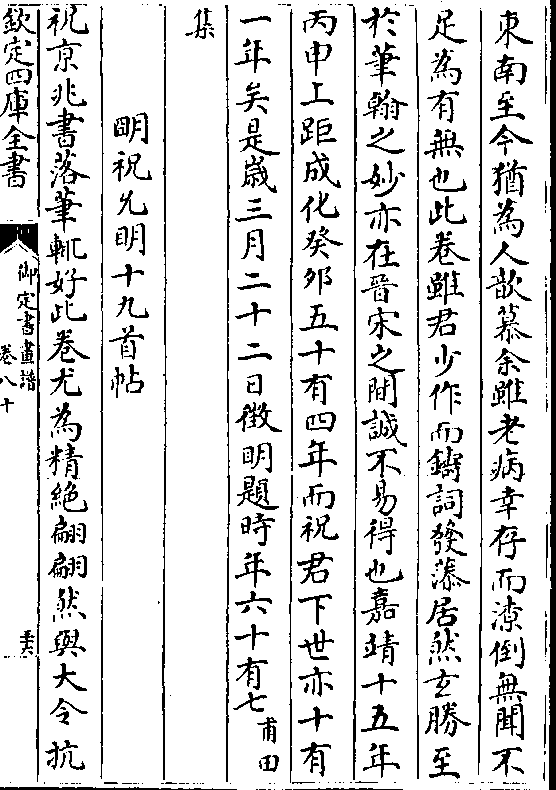 東南至今猶為人歆慕余雖老病幸存而潦倒無聞不
足為有無也此卷雖君少作而鑄詞發藻居然玄勝至
於筆翰之妙亦在晉宋之間誠不易得也嘉靖十五年
丙申上距成化癸夘五十有四年而祝君下世亦十有
一年矣是歲三月二十二日徴明題時年六十有七甫田
集
明祝允明十九首帖
祝京兆書落筆輒好此卷尤為精絶翩翩然與大令抗
欽定四庫全書
御定書畫譜
卷八十